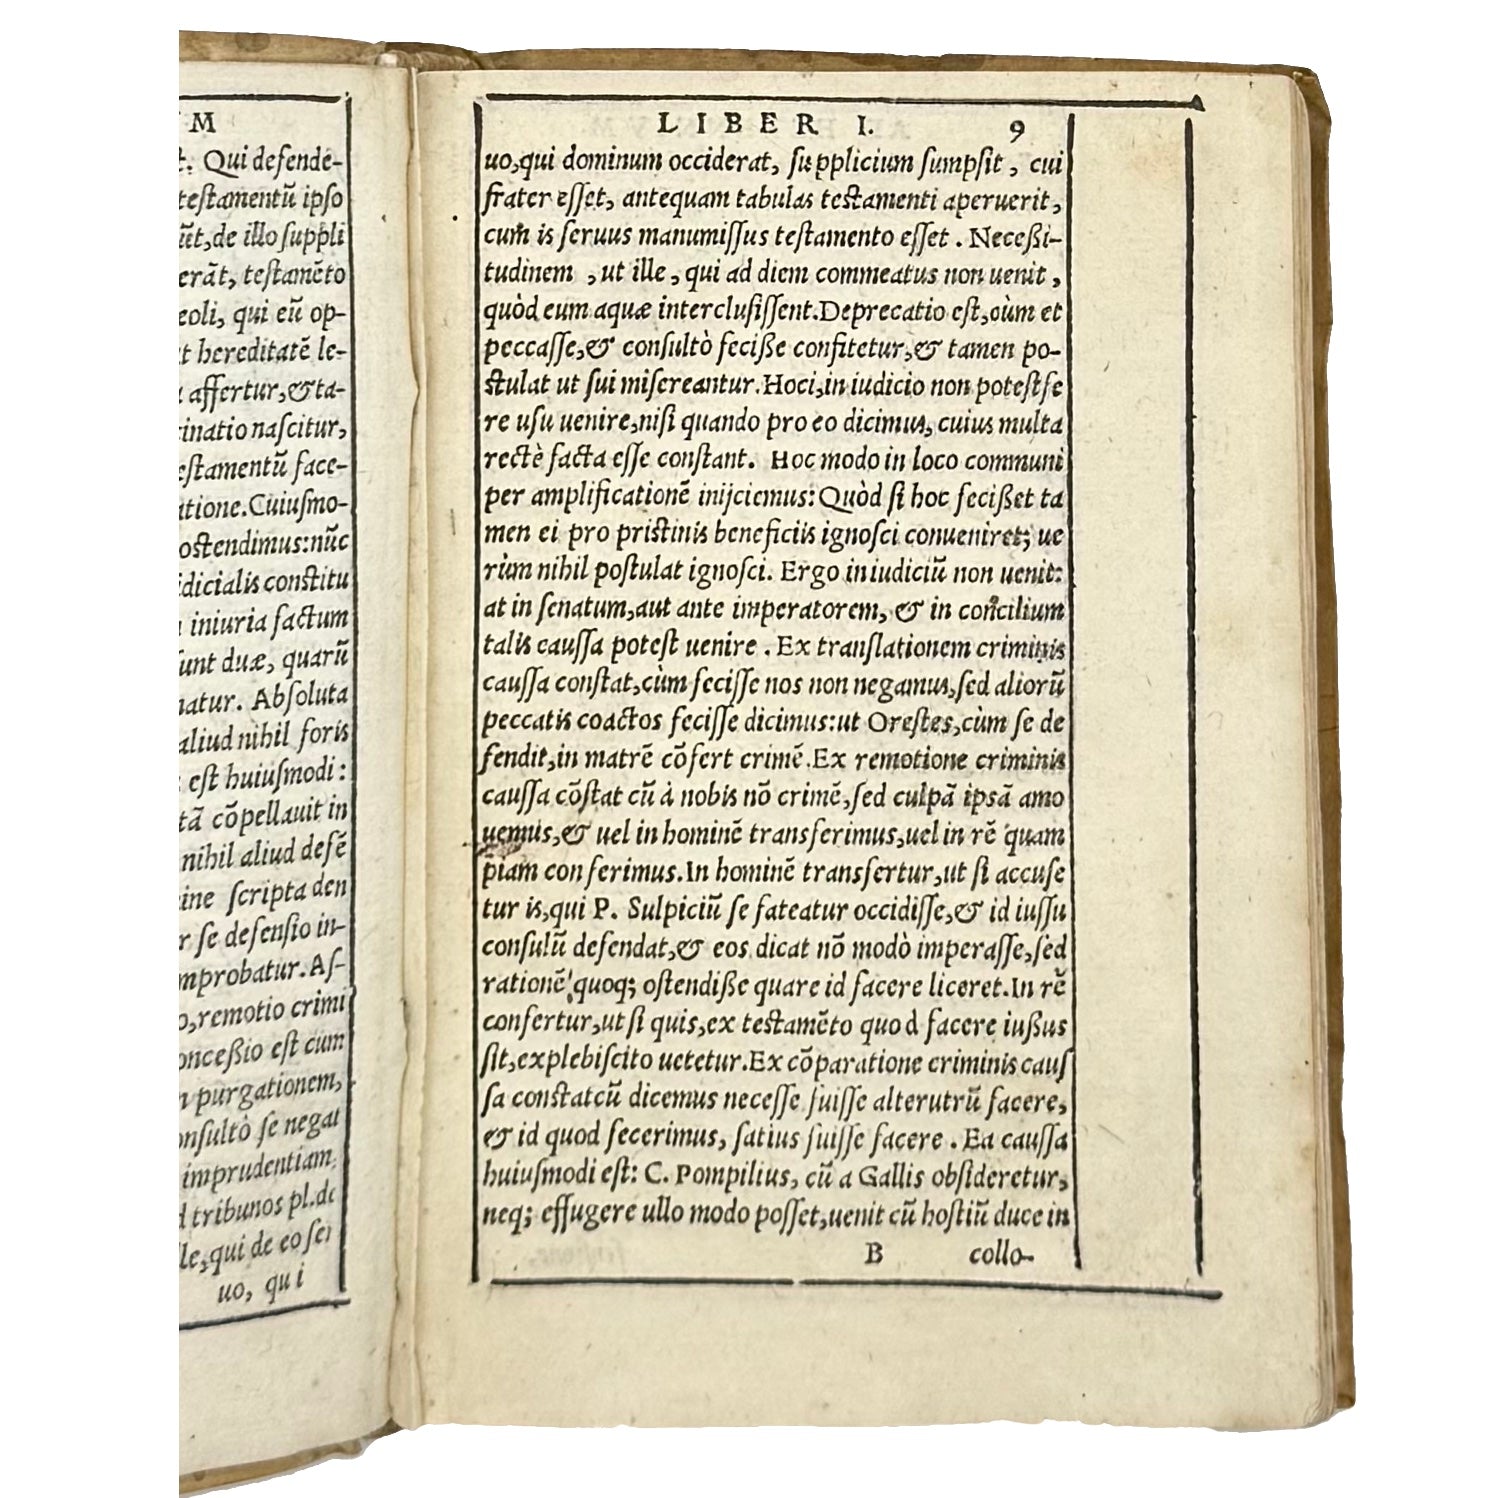 M
Qui defende-
testamentū ipso
de illo suppli
testamēto
qui eū op-
hereditatē le-
affertur, & ta-
nascitur,
face-
Cuiusmo-
ostendimus: nūc
constitu
iniuria factum
sunt duæ, quarū
Absoluta
aliud nihil foris
est huiusmodi:
cōpellauit in
nihil aliud defē
scripta den
se defensio in-
Af-
remotio crimi
est cum
purgationem,
se negat
imprudentiam,
tribunos pl. de
qui de eo ser
uo, qui
LIBER I. 9
uo, qui dominum occiderat, supplicium sumpsit, cui
frater esset, antequam tabulas testamenti aperuerit,
cum is seruus manumissus testamento esset. Neceßi-
tudinem, ut ille, qui ad diem commeatus non uenit,
quòd eum aquæ interclusissent. Deprecatio est, cùm et
peccasse, & consultò feciße confitetur, & tamen po-
stulat ut sui misereantur. Hoci, in iudicio non potest fe
re usu uenire, nisi quando pro eo dicimus, cuius multa
rectè facta esse constant. Hoc modo in loco communi
per amplificationē inijciemus: Quòd si hoc fecißet ta
men ei pro pristinis beneficiis ignosci conueniret; ue
rùm nihil postulat ignosci. Ergo in iudiciū non uenit:
at in senatum, aut ante imperatorem, & in concilium
talis caussa potest uenire. Ex translationem criminis
caussa constat, cùm fecisse nos non negamus, sed aliorū
peccatis coactos fecisse dicimus: ut Orestes, cùm se de
fendit, in matrē cōfert crimē. Ex remotione criminis
caussa cōstat cū à nobis nō crimē, sed culpā ipsā amo
uemus, & uel in hominē transferimus, uel in rē quam
piam conferimus. In hominē transfertur, ut si accuse
tur is, qui P. Sulpiciū se fateatur occidisse, & id iussu
consulū defendat, & eos dicat nō modò imperasse, sed
rationē quoq; ostendiße quare id facere liceret. In rē
confertur, ut si quis, ex testamēto quod facere iußus
sit, ex plebiscito uetetur. Ex cōparatione criminis caus
sa constat cū dicemus necesse fuisse alterutrū facere,
& id quod fecerimus, satius fuisse facere. Ea caussa
huiusmodi est: C. Pompilius, cū a Gallis obsideretur,
neq; effugere ullo modo posset, uenit cū hostiū duce in
B collo-